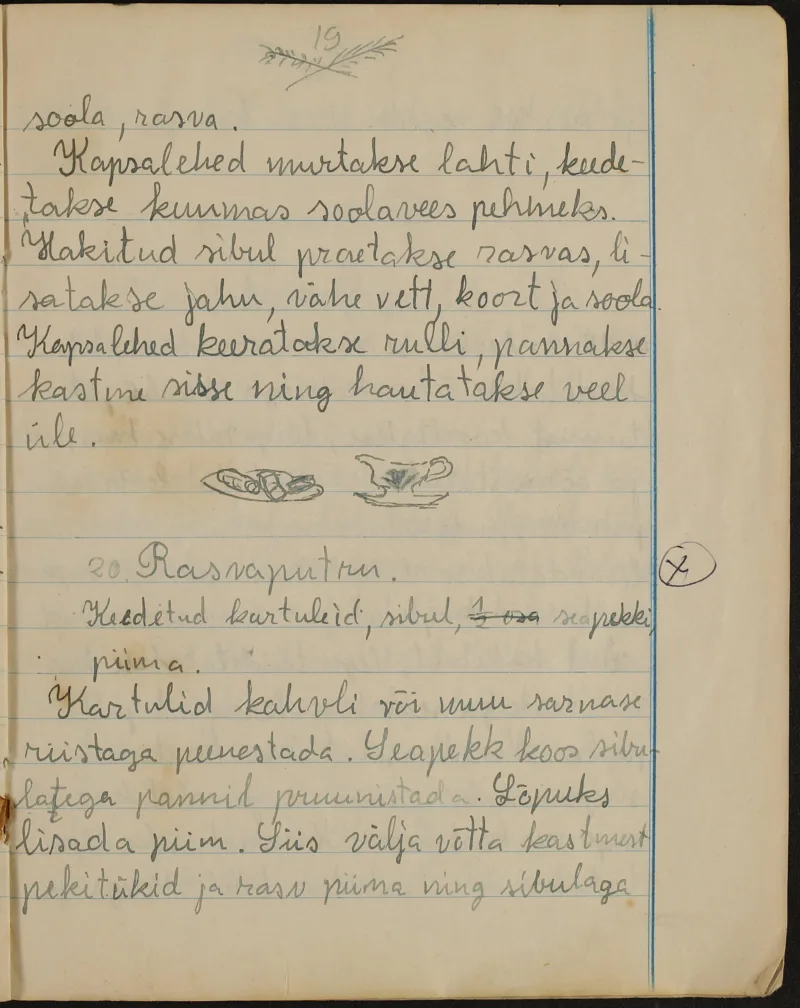 19
soola, rasva.
Kapsalehed murtakse lahti, keede-
takse kuumas soolavees pehmeks.
Hakitud sibul praetakse rasvas, li-
satakse jahu, vähe vett, koort ja soola.
Kapsalehed keeratakse rulli, pannakse
kastme sisse ning hautatakse veel
üle.
20. Rasvaputru.
Keedetud kartuleid, sibul, ½ osa seapekki,
piima.
Kartulid kahvli või muu sarnase
riistaga peenestada. Seapekk koos sibu-
latega pannil pruunistada. Lõpuks
lisada piim. Siis välja võtta kastmest
pekitükid ja rasv piima ning sibulaga